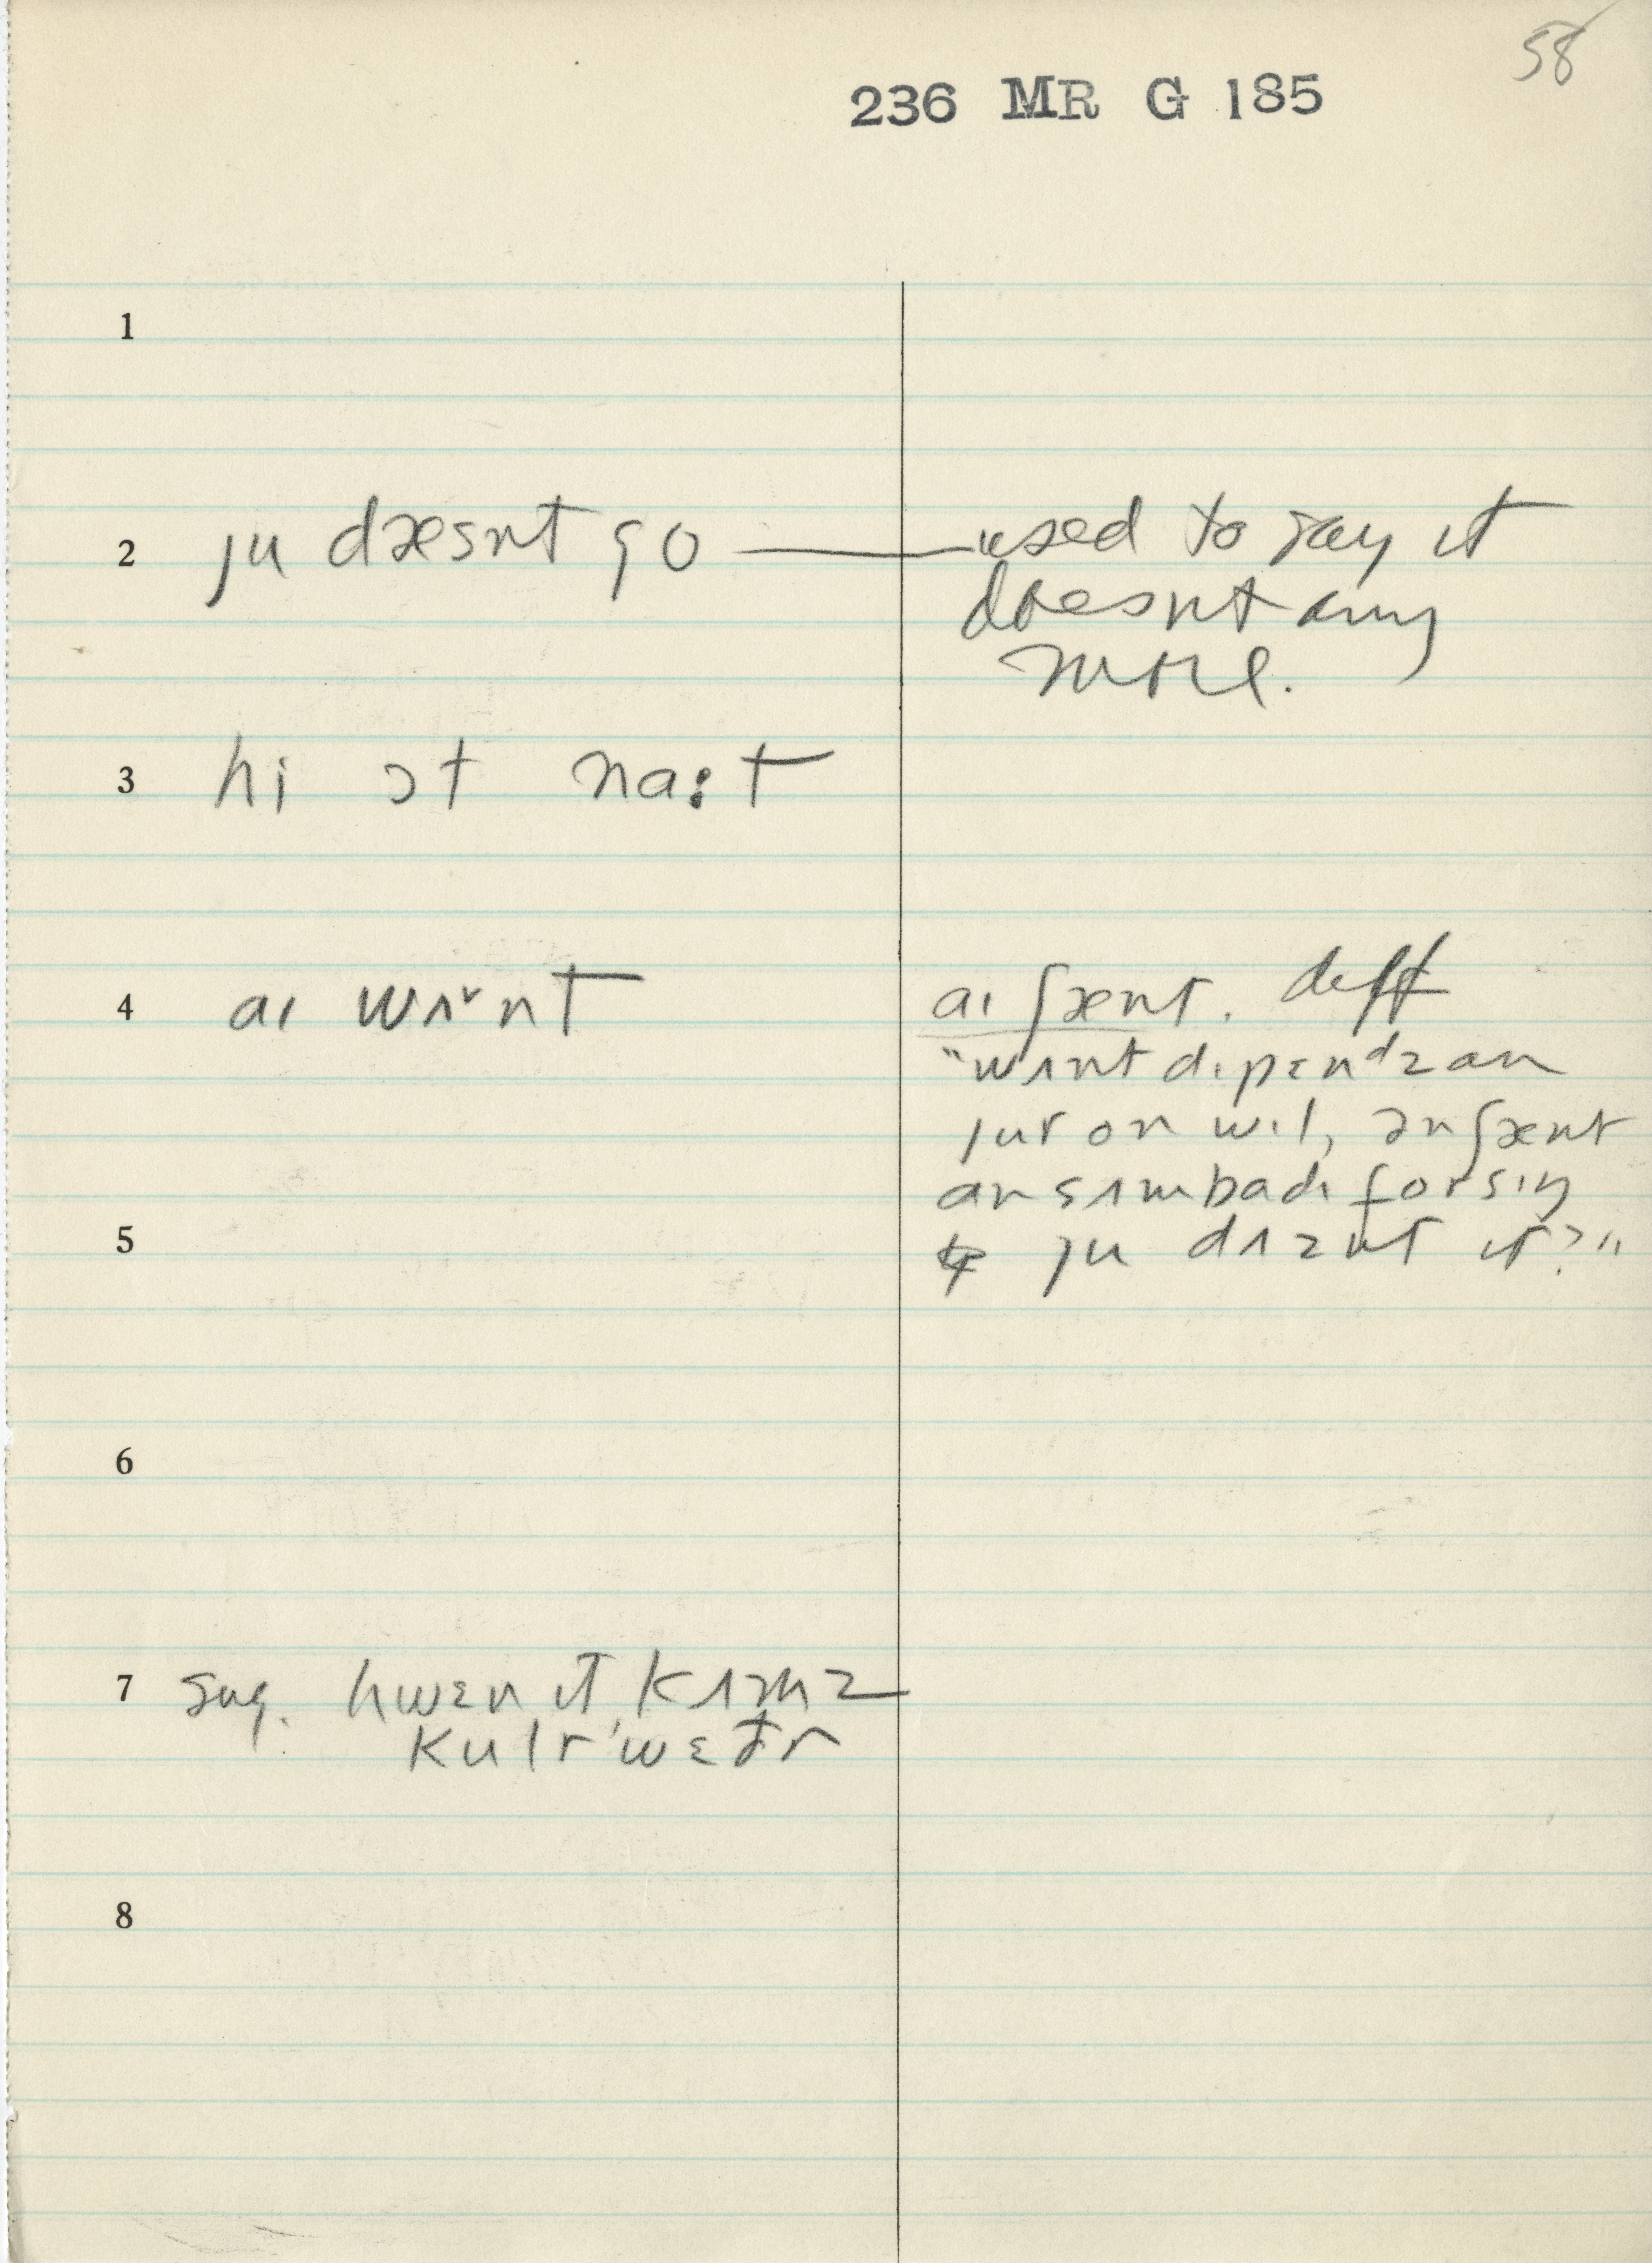 58
236 MR G 185
1
2 ju dɶsnt go — used to say it
doesnt any
more.
3 hi ɔt na:t
4 aɪ wʌnt aɪ ʃænt. diff
"wʌnt dɪpɛndz an
jur on wɪl, ən ʃænt
an sʌmbadɪ forsɪŋ
5 ju dʌznt ɪt?"
6
7 sug. hwɛn ɪt kʌmz
kulr 'wɛðr
8